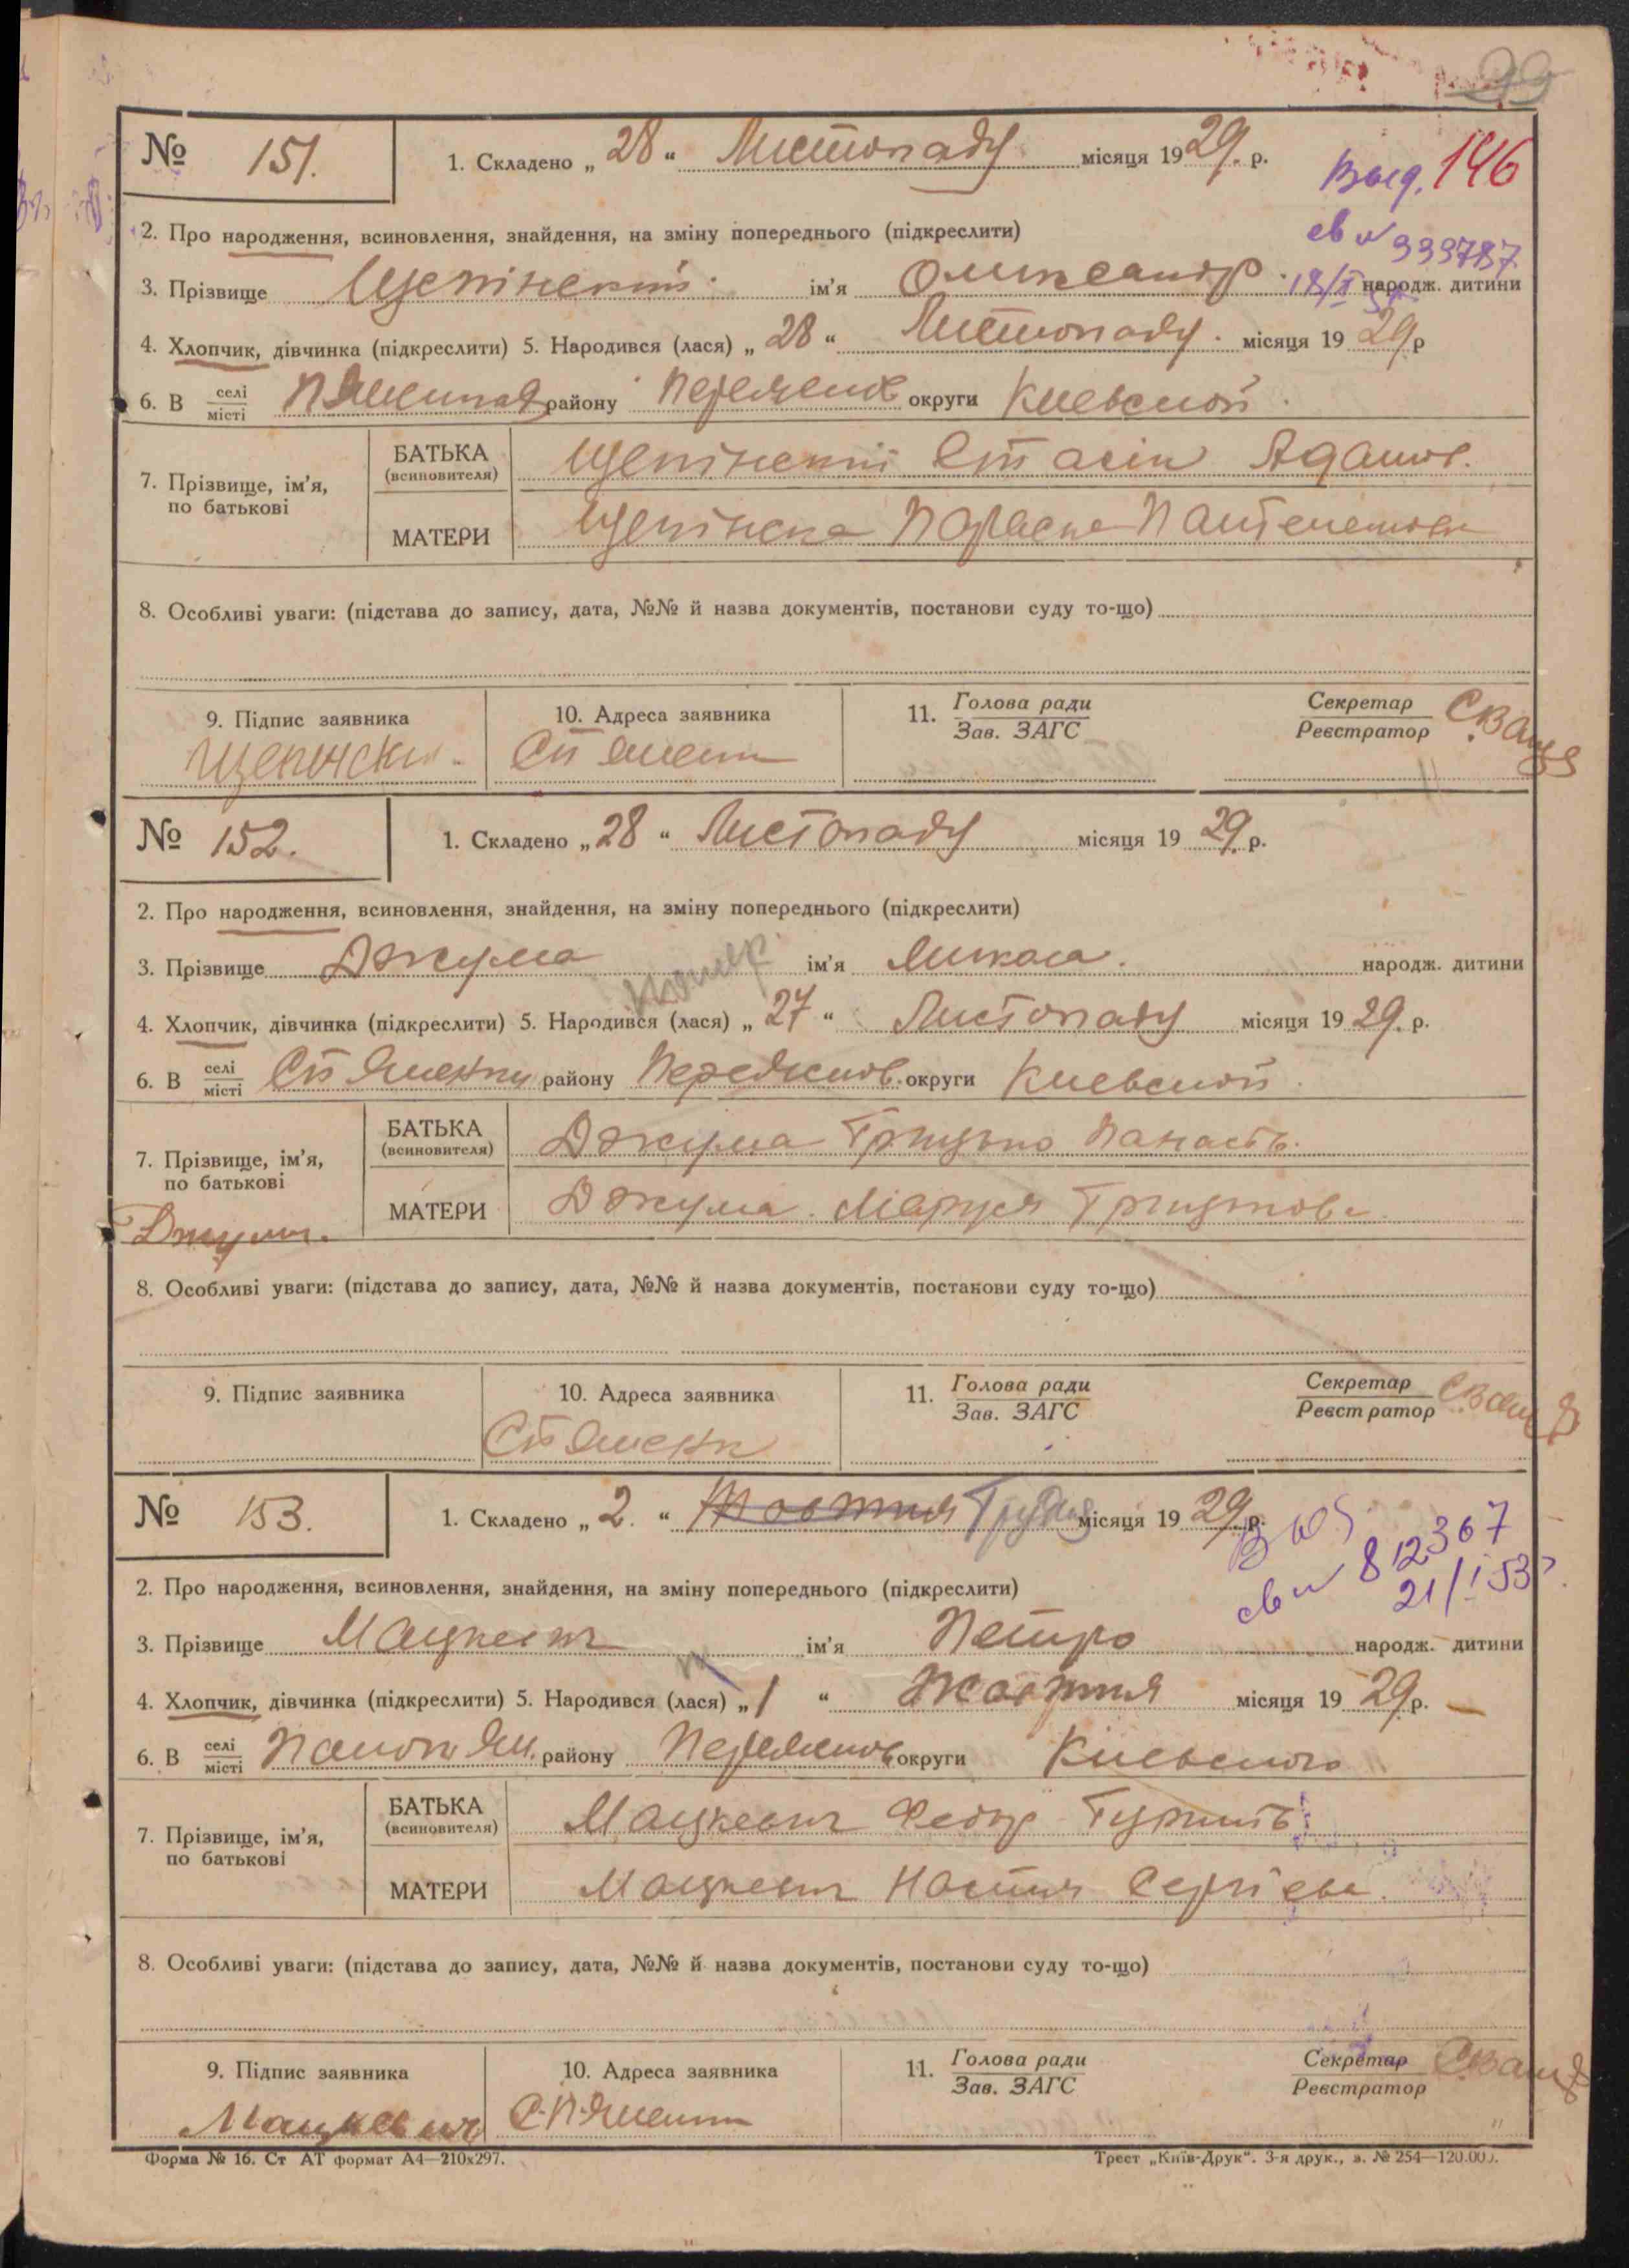 99
№ 151. 1. Складено „ 28 “ Листопаду місяця 1929. р. Выд. 146
2. Про народження, всиновлення, знайдення, на зміну попереднього (підкреслити) св № 939787
3. Прізвище Щепінский. ім’я Олександр. народж. дитини
4. Хлопчик, дівчинка (підкреслити) 5. Народився (лася) „ 28 “ Листопаду. місяця 19 29 р
6. В селі/місті району Переяслов округи Киевской.
7. Прізвище, ім’я, по батькові
БАТЬКА (всиновителя) Щепінский Стасік Адамов.
МАТЕРИ Щепінска Параска
8. Особливі уваги: (підстава до запису, дата, №№ й назва документів, постанови суду то-що)
9. Підпис заявника 10. Адреса заявника 11. Голова ради / Зав. ЗАГС Секретар / Реєстратор
Щепински
№ 152. 1. Складено „ 28 “ Листопаду місяця 19 29. р.
2. Про народження, всиновлення, знайдення, на зміну попереднього (підкреслити)
3. Прізвище Джума ім’я Микола. народж. дитини
4. Хлопчик, дівчинка (підкреслити) 5. Народився (лася) „ 27 “ Листопаду місяця 19 29. р.
6. В селі/місті Ст Яненки району Переяслов. округи Киевской.
7. Прізвище, ім’я, по батькові
БАТЬКА (всиновителя) Джума Грицько Панасів.
МАТЕРИ Джума. Маруся Грицькова
Джума.
8. Особливі уваги: (підстава до запису, дата, №№ й назва документів, постанови суду то-що)
9. Підпис заявника 10. Адреса заявника 11. Голова ради / Зав. ЗАГС Секретар / Реєстратор
№ 153. 1. Складено „ 2. “ Жовтня Грудня місяця 19 29 р.
св № 812367
21/I 53
2. Про народження, всиновлення, знайдення, на зміну попереднього (підкреслити)
3. Прізвище Мацкевич ім’я Петро народж. дитини
4. Хлопчик, дівчинка (підкреслити) 5. Народився (лася) „ 1 “ Жовтня місяця 19 29 р.
6. В селі/місті району Переяслов округи Киевского
7. Прізвище, ім’я, по батькові
БАТЬКА (всиновителя) Мацкевич Федір
МАТЕРИ Мацкевич Настя Сергієва.
8. Особливі уваги: (підстава до запису, дата, №№ й назва документів, постанови суду то-що)
9. Підпис заявника 10. Адреса заявника 11. Голова ради / Зав. ЗАГС Секретар / Реєстратор
Мацкевич
Форма № 16. Ст АТ формат А4—210х297. Трест „Київ-Друк“. 3-я друк., з. № 254—120.000.